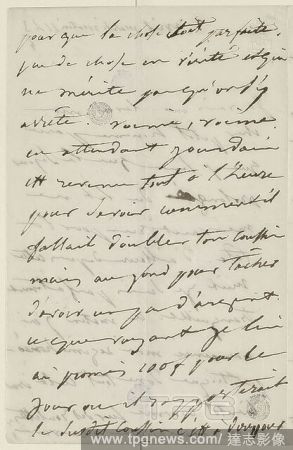 pour que la chose soit parfaite,
peu de chose en vérité et qui
ne mérite pas qu'on s'y
arrête.
en attendant Jourdain
est revenu tout à l'heure
pour savoir comment il
fallait doubler ton coussin
mais au fond pour tâcher
d'avoir un peu d'argent.
ce que voyant je lui
ai promis 100f pour le
jour où il rapporterait
le susdit coussin
www.tpgnews.com / 達志影像